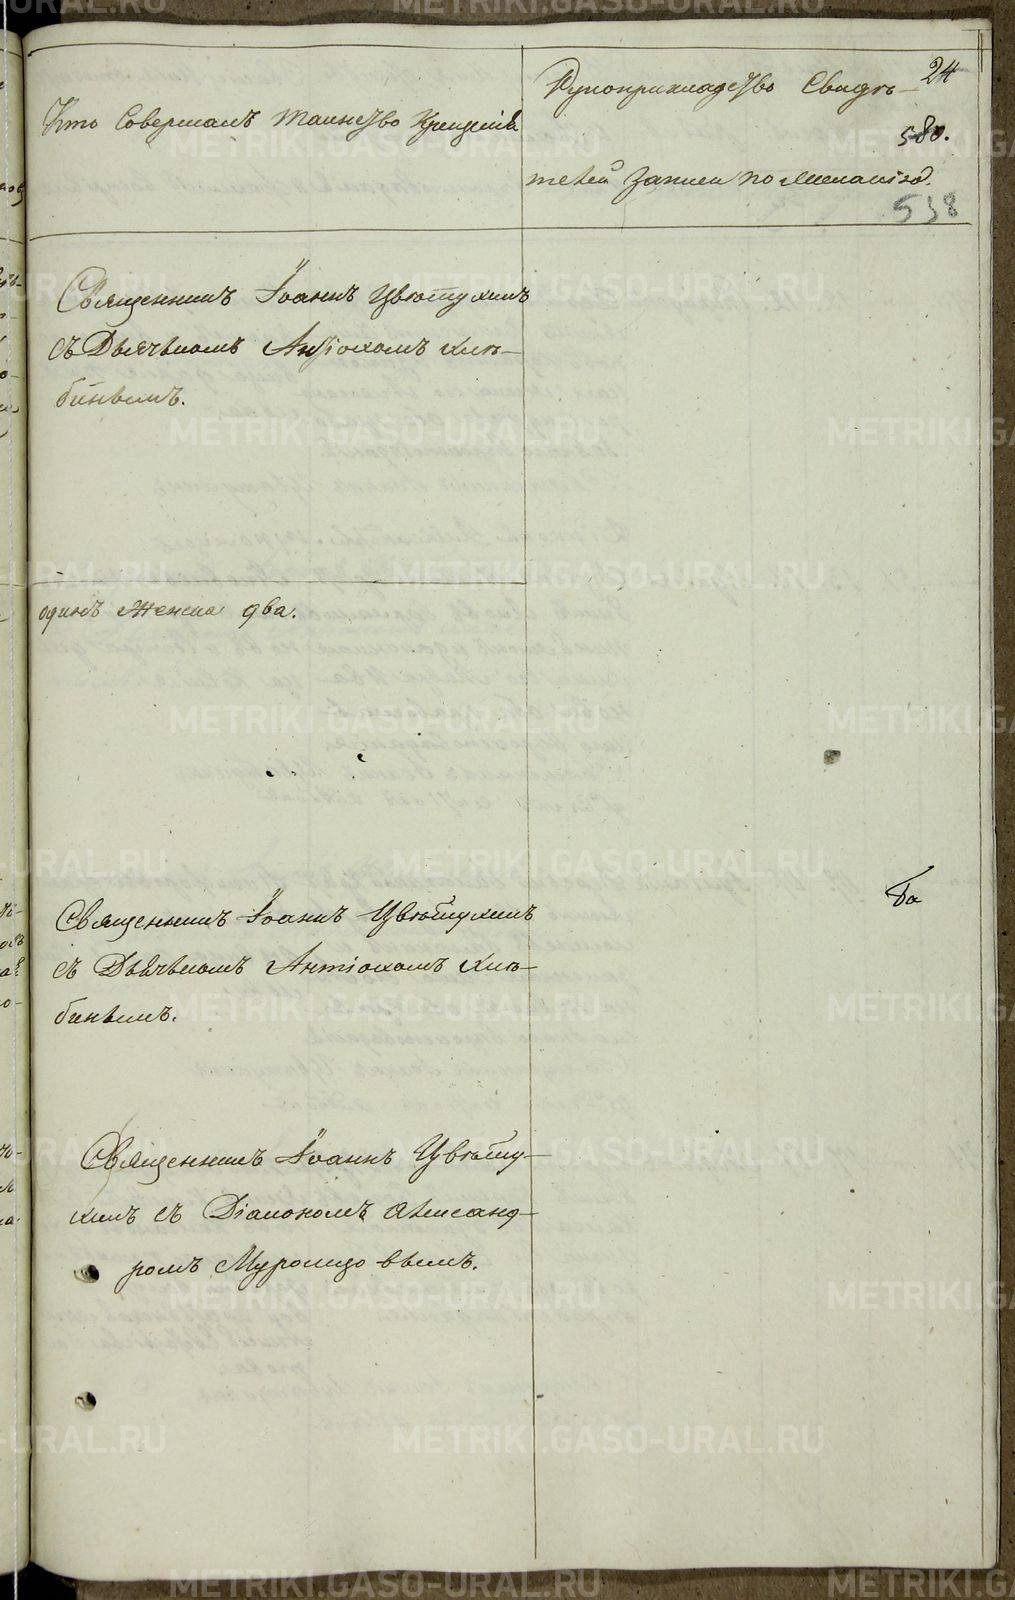 24
Кто Совершалъ таинство Крещенія
Рукоприкладство Свидѣ-
580.
телей записи по желанію.
538
Священникъ Іоаннъ Цвѣтухинъ
съ Дьячкомъ Антіохомъ Хлѣ-
бинымъ.
одинъ женска два.
Священникъ Іоаннъ Цвѣтухинъ
съ Дьячкомъ Антіохомъ Хлѣ-
бинымъ.
Священникъ Іоаннъ Цвѣту-
хинъ съ Діакономъ Александ-
ромъ Муромцовымъ.
METRIKI.GASO-URAL.RU